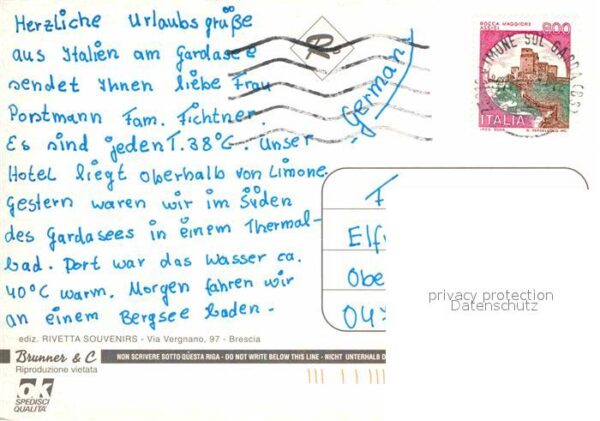 Herzliche Urlaubsgrüße
aus Italien am Gardasee
sendet Ihnen liebe Frau
Porstmann Fam. Fichtner.
Es sind jeden T. 38°C. Unser
Hotel liegt oberhalb von Limone.
Gestern waren wir im Süden
des Gardasees in einem Thermal-
bad. Dort war das Wasser ca.
40°C warm. Morgen fahren wir
an einem Bergsee baden.
Germany
ROCCA MAGGIORE
ASSISI
800
LIMONE SUL GARDA (BS)
ITALIA
F
Elf
Obe
04
privacy protection
Datenschutz
ediz. RIVETTA SOUVENIRS - Via Vergnano, 97 - Brescia
Brunner & C
Riproduzione vietata
NON SCRIVERE SOTTO QUESTA RIGA - DO NOT WRITE BELOW THIS LINE - NICHT UNTERHALB D
OK
SPEDISCI
QUALITÀ